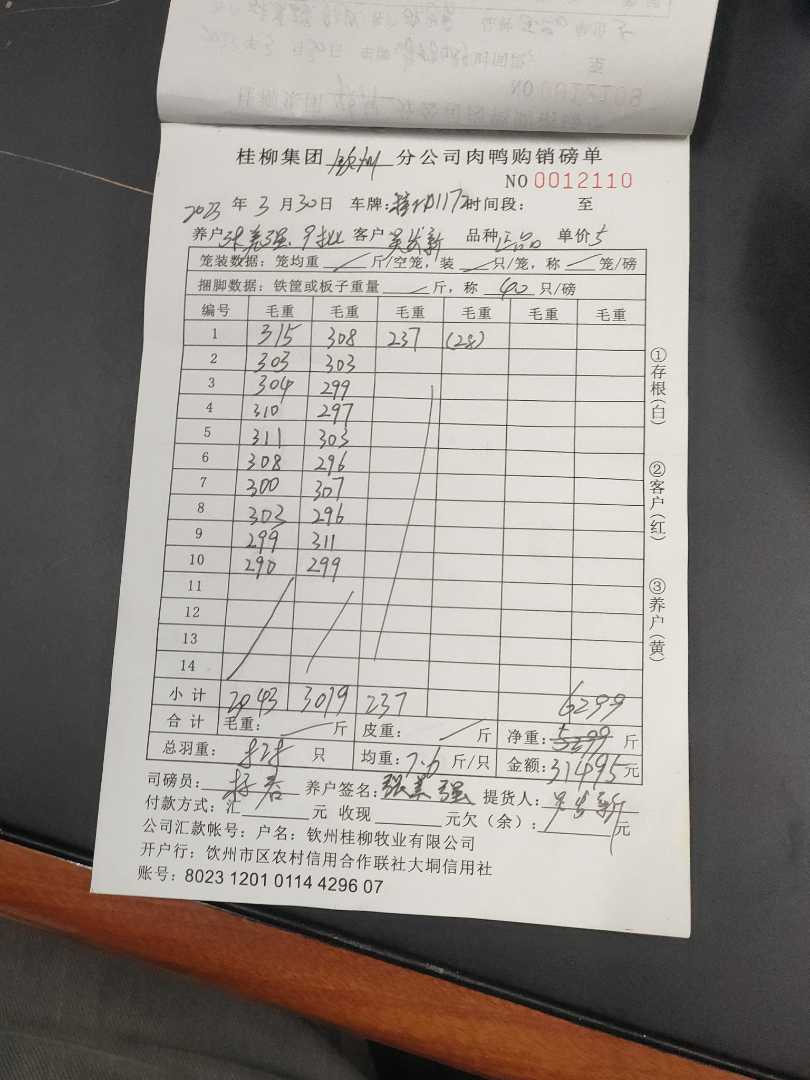 桂柳集团 钦州 分公司肉鸭购销磅单
NO 0012110
2023 年 3 月 30 日 车牌: 时间段: 至
养户 张美强 客户 吴发新 品种 正品 单价 5
笼装数据: 笼均重 / 斤/空笼, 装 / 只/笼, 称 / 笼/磅
捆脚数据: 铁筐或板子重量 / 斤, 称 40 只/磅
编号 毛重 毛重 毛重 毛重 毛重 毛重
1 315 308 237 (28)
2 303 303
3 304 299
4 310 297
5 311 303
6 308 296
7 300 307
8 303 296
9 299 311
10 290 299
11
12
13
14
小计 3019 237 6299
合计 毛重: / 斤 皮重: / 斤 净重: 斤
总羽重: 只 均重: 7.6 斤/只 金额: 31495 元
司磅员: 养户签名: 张美强 提货人: 吴发新
付款方式: 汇 元 收现 元欠(余): 元
公司汇款帐号: 户名: 钦州桂柳牧业有限公司
开户行: 钦州市区农村信用合作联社大垌信用社
账号: 8023 1201 0114 4296 07
①存根(白)
②客户(红)
③养户(黄)